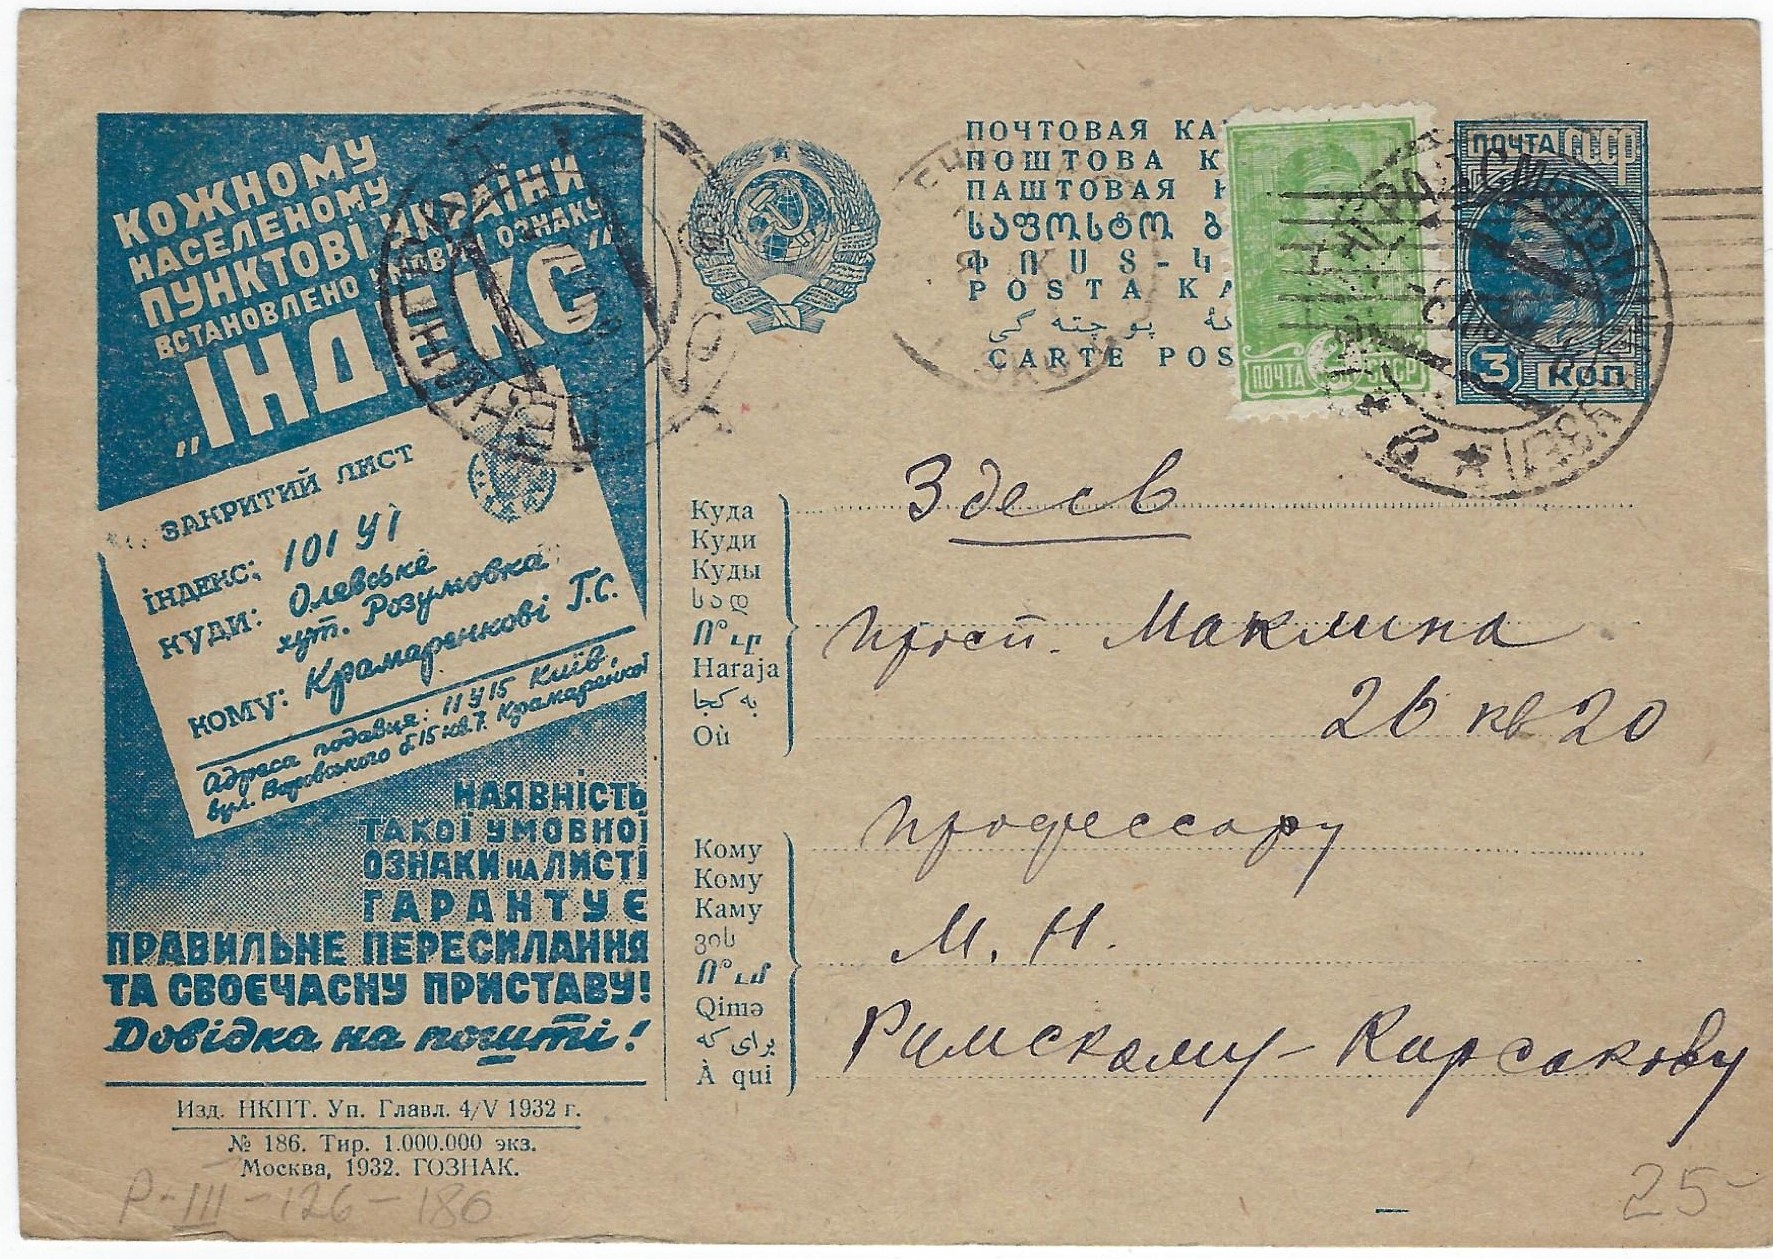 КОЖНОМУ
НАСЕЛЕНОМУ
ПУНКТОВІ УКРАЇНИ
ВСТАНОВЛЕНО ОЗНАКУ
„ІНДЕКС"
ЗАКРИТИЙ ЛИСТ
ІНДЕКС: 101 УІ
КУДИ: Олевське
хут. Розумовка
КОМУ: Крамаренкові Г.С.
Адреса подавця: 11У15 Київ,
вул. Воровського б.15 кв.7. Крамаренкої
НАЯВНІСТЬ
ТАКОЇ УМОВНОЇ
ОЗНАКИ НА ЛИСТІ
ГАРАНТУЄ
ПРАВИЛЬНЕ ПЕРЕСИЛАННЯ
ТА СВОЄЧАСНУ ПРИСТАВУ!
Довідка на пошті!
Изд. НКПТ. Уп. Главл. 4/V 1932 г.
№ 186. Тир. 1.000.000 экз.
Москва, 1932. ГОЗНАК.
Р-III-126-186
ПОЧТОВАЯ КА
ПОШТОВА К
ПАШТОВАЯ
ᲡᲐᲤᲝᲡᲢᲝ Ბ
ՓՈՍՏ-Կ
POSTA KA
پوچته كی
CARTE POS
ПОЧТА СССР
ПОЧТА СССР
3 КОП
Куда
Куди
Куды
სად
Ո՞ւր
Haraja
به كجا
Où
Здесь
просп. Маклина
26 кв 20
Кому
Кому
Каму
ვის
Ո՞ւմ
Qimə
برای كه
À qui
профессору
М. Н.
Римскому-Карсакову
25-